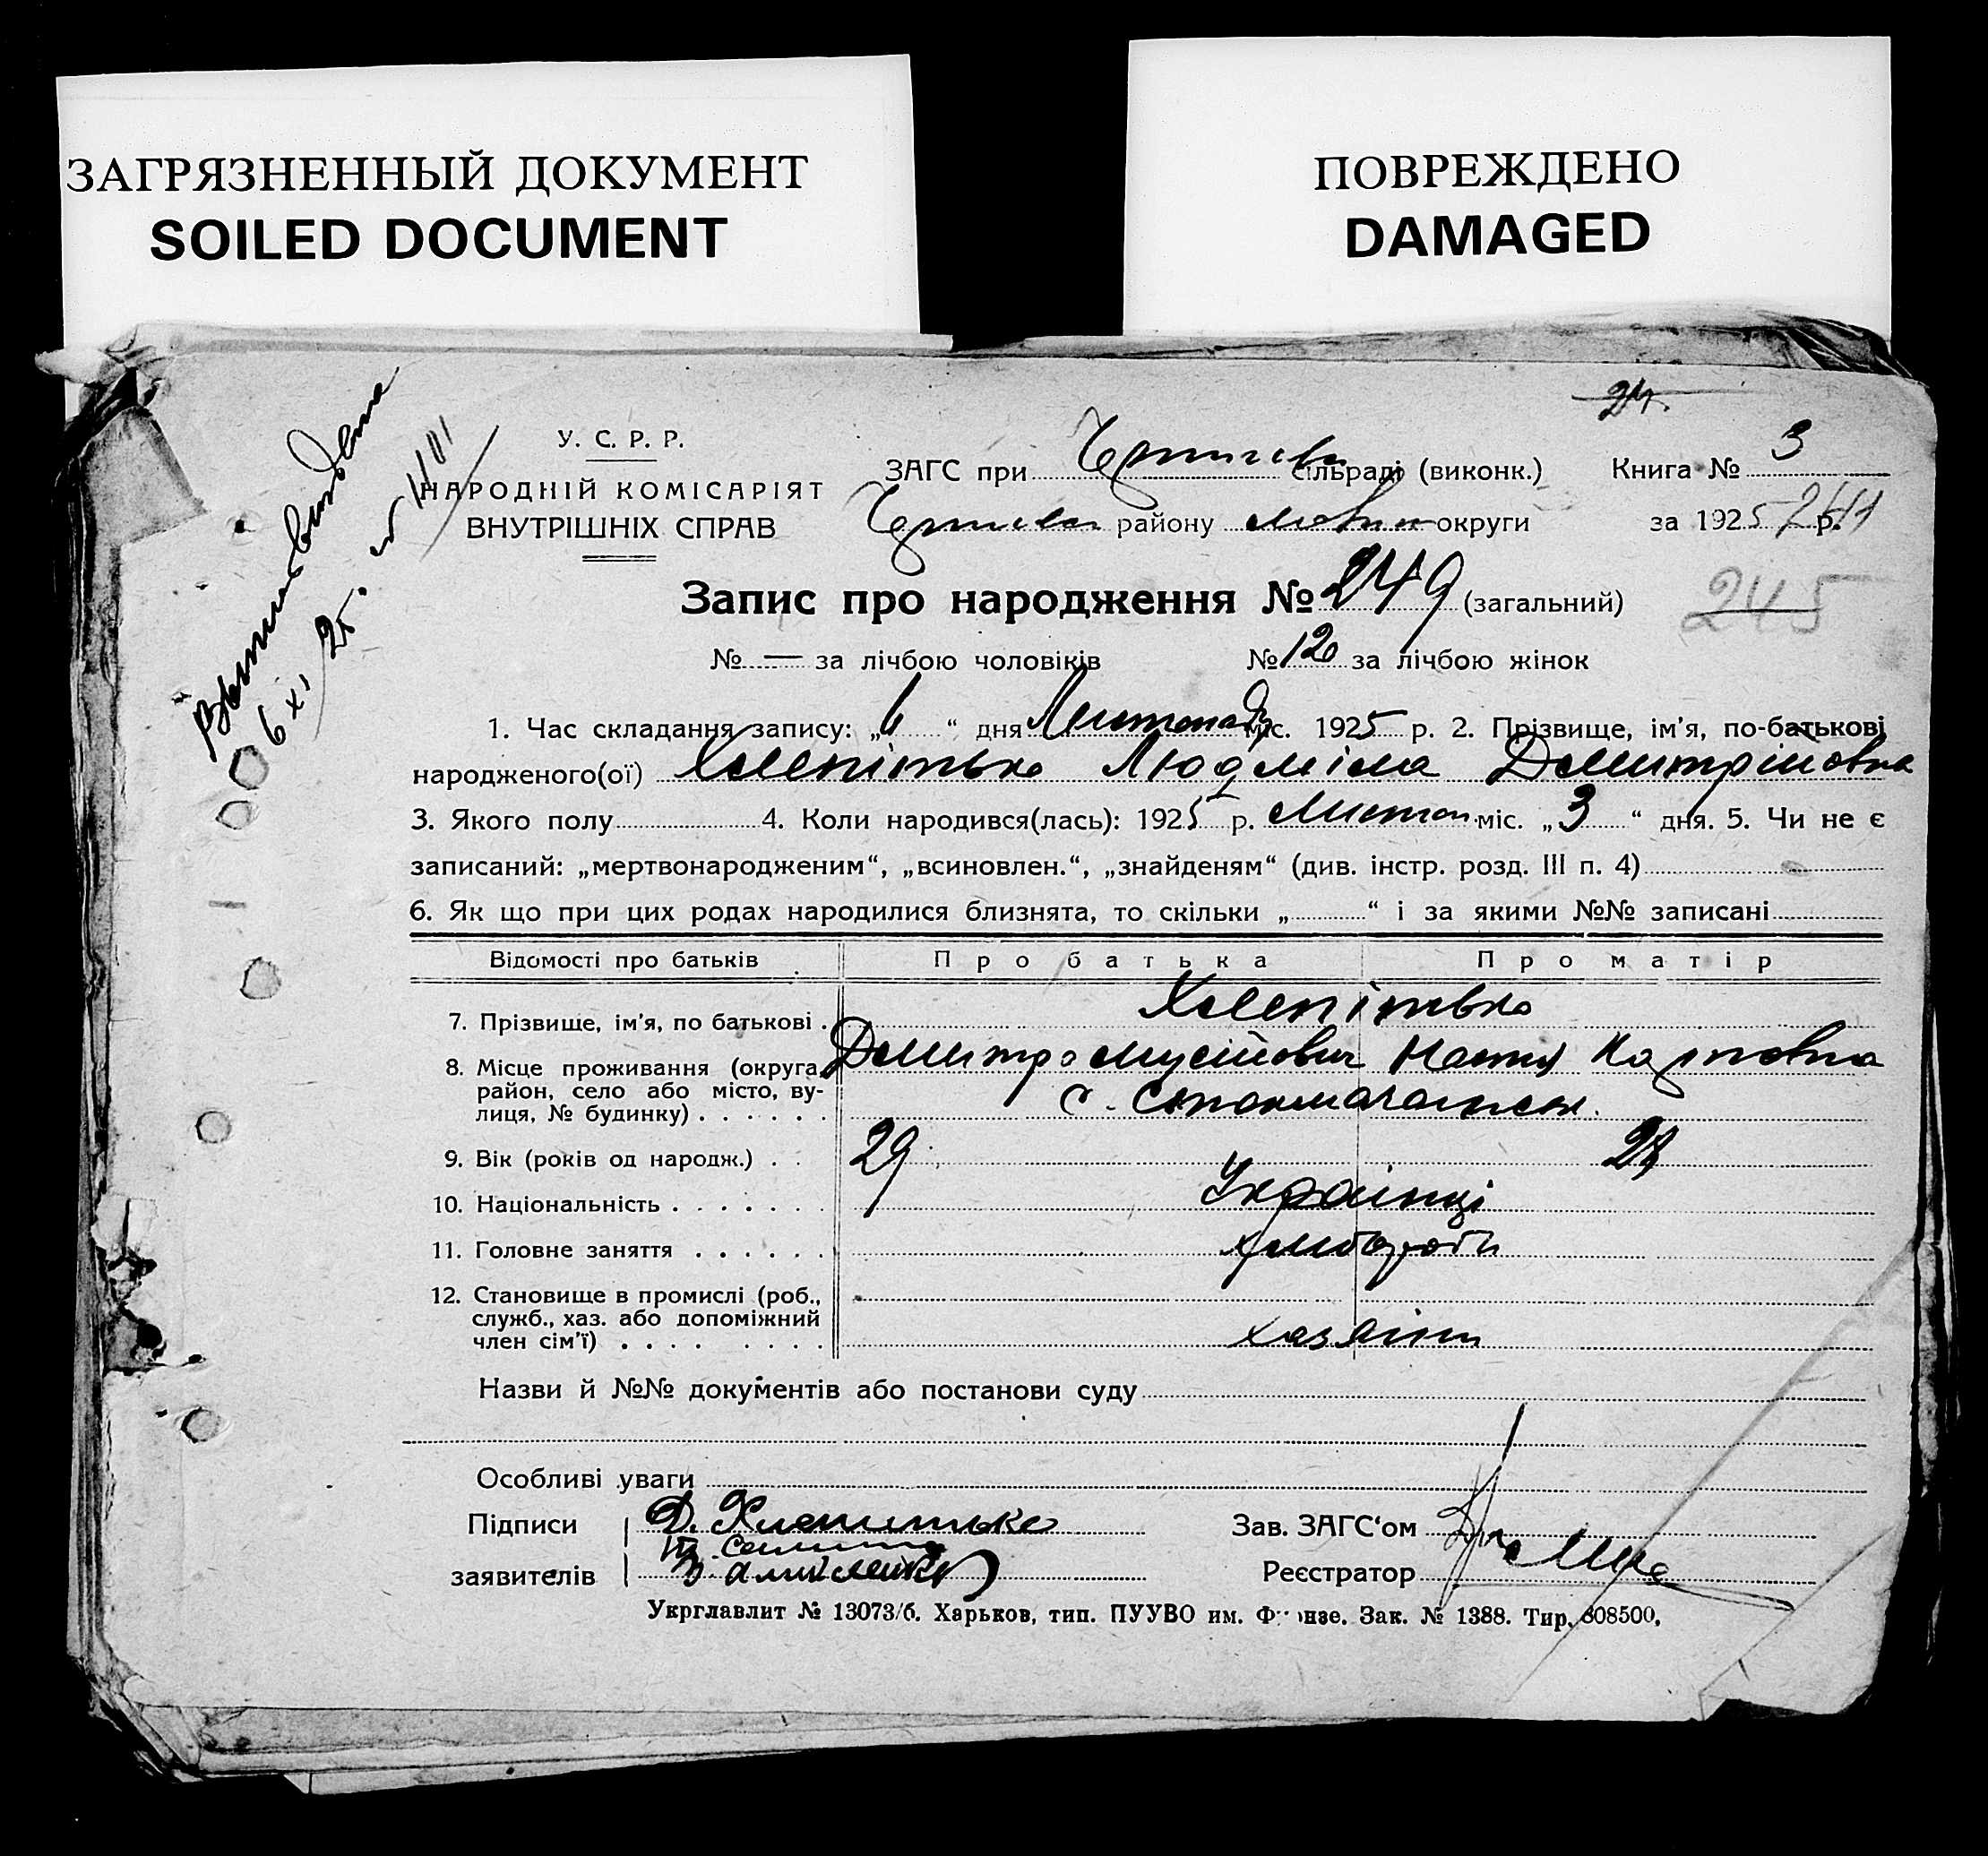 ЗАГРЯЗНЕННЫЙ ДОКУМЕНТ
SOILED DOCUMENT
ПОВРЕЖДЕНО
DAMAGED
24.
6 XI 25. № 1101
У. С. Р. Р.
НАРОДНІЙ КОМІСАРІЯТ
ВНУТРІШНІХ СПРАВ
ЗАГС при сільраді (виконк.) Книга № 3
району округи за 1925 р.
Запис про народження № 249 (загальний) 245
№ — за лічбою чоловіків № 120 за лічбою жінок
1. Час складання запису: „6“ дня Листопада міс. 1925 р. 2. Прізвище, ім'я, по-батькові
народженого(ої) Хлепітько Людміла Дмитрійовна
3. Якого полу 4. Коли народився(лась): 1925 р. Листоп. міс. „3“ дня. 5. Чи не є
записаний: „мертвонародженим“, „всиновлен.“, „знайденям“ (див. інстр. розд. III п. 4)
6. Як що при цих родах народилися близнята, то скільки „ “ і за якими №№ записані
Відомості про батьків Про батька Про матір
7. Прізвище, ім'я, по батькові . Хлепітько
Дмитро Мусійович Настя Карповна
8. Місце проживання (округа,
район, село або місто, ву-
лиця, № будинку) . . . . . . с.
9. Вік (років од народж.) . . 29 24
10. Національність . . . . . . . Українці
11. Головне заняття . . . . . . хлібороби
12. Становище в промислі (роб.,
служб., хаз. або допоміжний
член сім'ї) . . . . . . . . хазяіни
Назви й №№ документів або постанови суду
Особливі уваги
Підписи Д. Хлепитько
заявителів
Зав. ЗАГС'ом
Реєстратор
Укрглавлит № 13073/б. Харьков, тип. ПУУВО им. Фрунзе. Зак. № 1388. Тир. 808500,